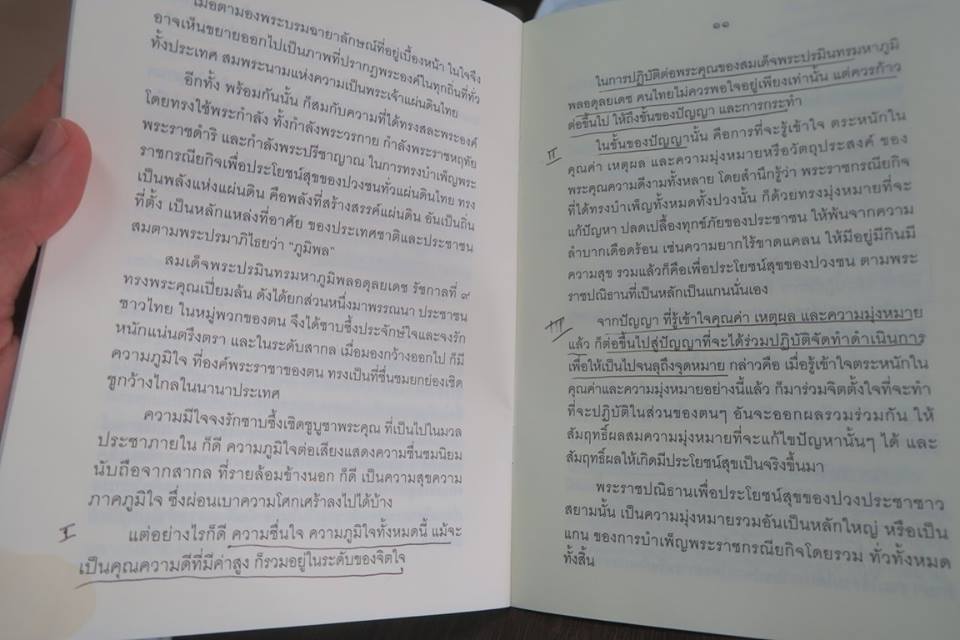 เมื่อตามองพระบรมฉายาลักษณ์ที่อยู่เบื้องหน้า ในใจจึง
อาจเห็นขยายออกไปเป็นภาพที่ปรากฏพระองค์ในทุกถิ่นที่ทั่ว
ทั้งประเทศ สมพระนามแห่งความเป็นพระเจ้าแผ่นดินไทย
อีกทั้ง พร้อมกันนั้น ก็สมกับความที่ได้ทรงสละพระองค์
โดยทรงใช้พระกำลัง ทั้งกำลังพระวรกาย กำลังพระราชหฤทัย
พระราชดำริ และกำลังพระปรีชาญาณ ในการทรงบำเพ็ญพระ
ราชกรณียกิจเพื่อประโยชน์สุขของปวงชนทั่วแผ่นดินไทย ทรง
เป็นพลังแห่งแผ่นดิน คือพลังที่สร้างสรรค์แผ่นดิน อันเป็นถิ่น
ที่ตั้ง เป็นหลักแหล่งที่อาศัย ของประเทศชาติและประชาชน
สมตามพระปรมาภิไธยว่า "ภูมิพล"
สมเด็จพระปรมินทรมหาภูมิพลอดุลยเดช รัชกาลที่ ๙
ทรงพระคุณเปี่ยมล้น ดังได้ยกส่วนหนึ่งมาพรรณนา ประชาชน
ชาวไทย ในหมู่พวกของตน จึงได้ซาบซึ้งประจักษ์ใจและจงรัก
หนักแน่นตรึงตรา และในระดับสากล เมื่อมองกว้างออกไป ก็มี
ความภูมิใจ ที่องค์พระราชาของตน ทรงเป็นที่ชื่นชมยกย่องเชิด
ชูกว้างไกลในนานาประเทศ
ความมีใจจงรักซาบซึ้งเชิดชูบูชาพระคุณ ที่เป็นไปในมวล
ประชาภายใน ก็ดี ความภูมิใจต่อเสียงแสดงความชื่นชมนิยม
นับถือจากสากล ที่รายล้อมข้างนอก ก็ดี เป็นความสุขความ
ภาคภูมิใจ ซึ่งผ่อนเบาความโศกเศร้าลงไปได้บ้าง
I แต่อย่างไรก็ดี ความชื่นใจ ความภูมิใจทั้งหมดนี้ แม้จะ
เป็นคุณความดีที่มีค่าสูง ก็รวมอยู่ในระดับของจิตใจ
๑๑
ในการปฏิบัติต่อพระคุณของสมเด็จพระปรมินทรมหาภูมิ
พลอดุลยเดช คนไทยไม่ควรพอใจอยู่เพียงเท่านั้น แต่ควรก้าว
ต่อขึ้นไป ให้ถึงขั้นของปัญญา และการกระทำ
II ในขั้นของปัญญานั้น คือการที่จะรู้เข้าใจ ตระหนักใน
คุณค่า เหตุผล และความมุ่งหมายหรือวัตถุประสงค์ ของ
พระคุณความดีงามทั้งหลาย โดยสำนึกรู้ว่า พระราชกรณียกิจ
ที่ได้ทรงบำเพ็ญทั้งหมดทั้งปวงนั้น ก็ด้วยทรงมุ่งหมายที่จะ
แก้ปัญหา ปลดเปลื้องทุกข์ภัยของประชาชน ให้พ้นจากความ
ลำบากเดือดร้อน เช่นความยากไร้ขาดแคลน ให้มีอยู่มีกินมี
ความสุข รวมแล้วก็คือเพื่อประโยชน์สุขของปวงชน ตามพระ
ราชปณิธานที่เป็นหลักเป็นแกนนั่นเอง
III จากปัญญา ที่รู้เข้าใจคุณค่า เหตุผล และความมุ่งหมาย
แล้ว ก็ต่อขึ้นไปสู่ปัญญาที่จะได้ร่วมปฏิบัติจัดทำดำเนินการ
เพื่อให้เป็นไปจนลุถึงจุดหมาย กล่าวคือ เมื่อรู้เข้าใจตระหนักใน
คุณค่าและความมุ่งหมายอย่างนี้แล้ว ก็มาร่วมจิตตั้งใจที่จะทำ
ที่จะปฏิบัติในส่วนของตนๆ อันจะออกผลรวมร่วมกัน ให้
สัมฤทธิ์ผลสมความมุ่งหมายที่จะแก้ไขปัญหานั้นๆ ได้ และ
สัมฤทธิ์ผลให้เกิดมีประโยชน์สุขเป็นจริงขึ้นมา
พระราชปณิธานเพื่อประโยชน์สุขของปวงประชาชาว
สยามนั้น เป็นความมุ่งหมายรวมอันเป็นหลักใหญ่ หรือเป็น
แกน ของการบำเพ็ญพระราชกรณียกิจโดยรวม ทั่วทั้งหมด
ทั้งสิ้น